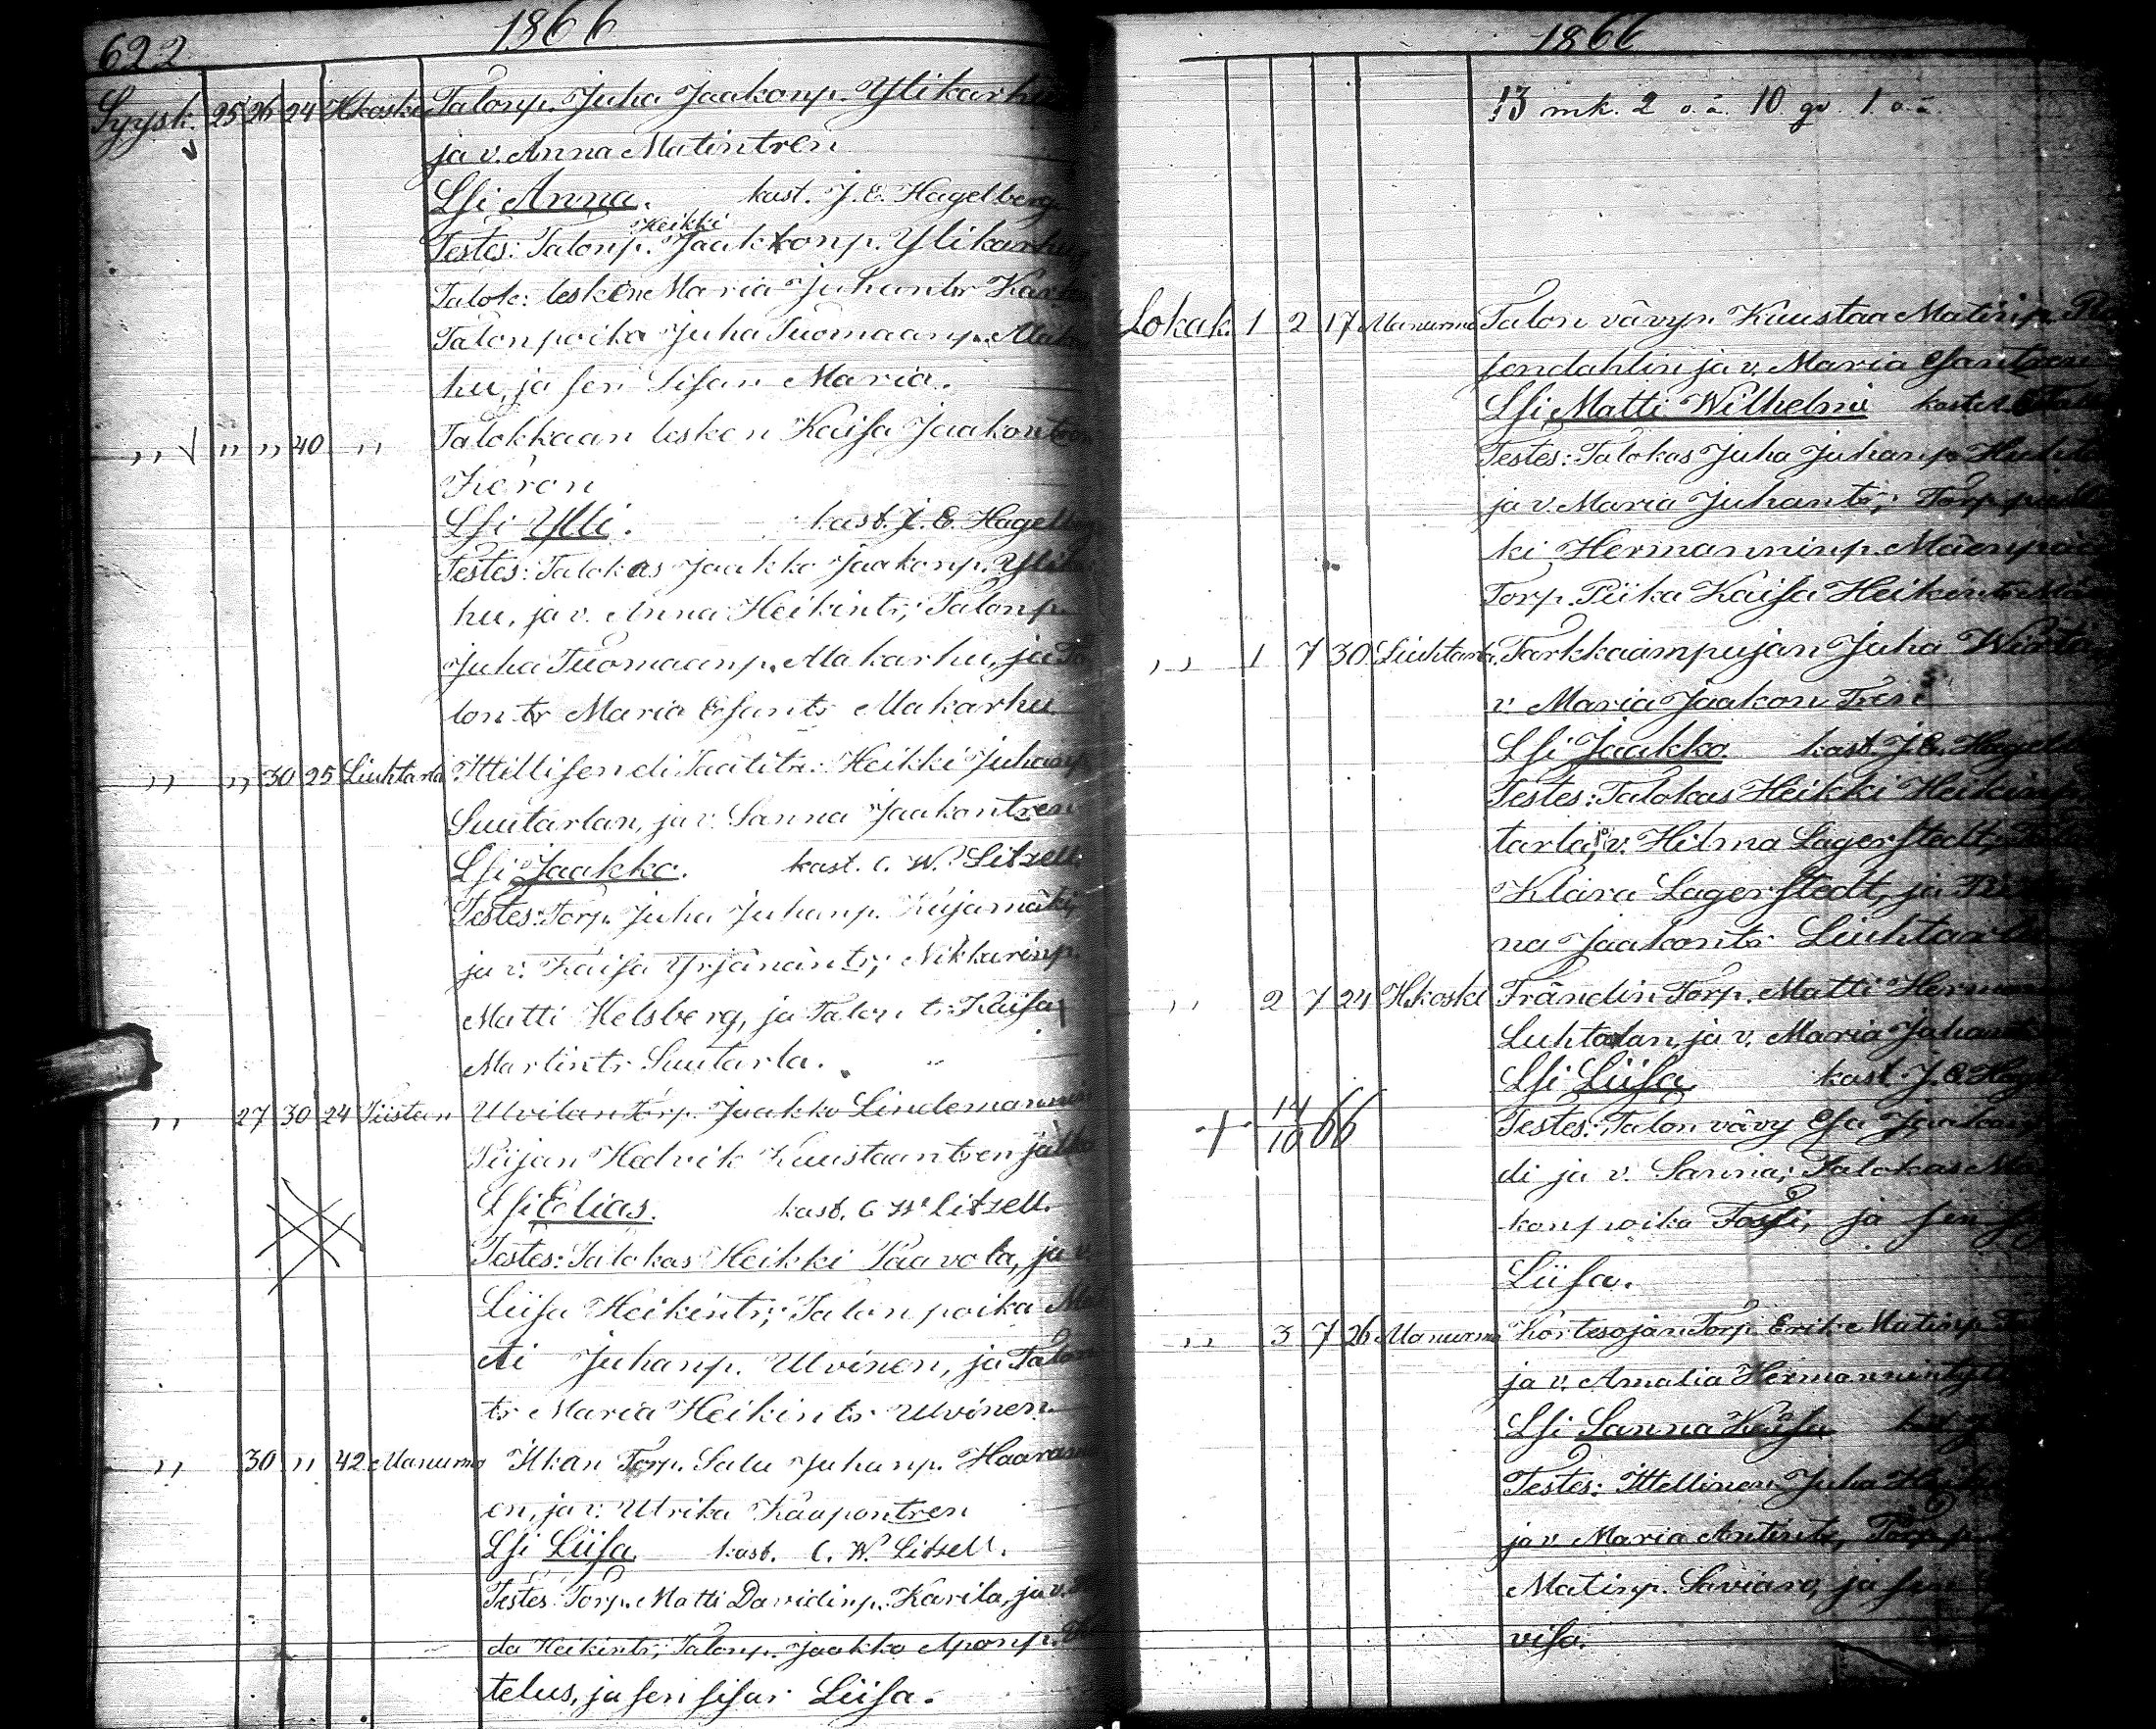 622
1866
Syysk. 25 26 24 Hkoski Talonp. Juha Jaakonp. Ylikarhu
ja v. Anna Matintren
Lsi Anna. kast. J. E. Hagelberg
Heikki
Testes: Talonp. Jaakkonp. Ylikarhu
Talok: lesken Maria Juhantr
Talonpoika Juha Tuomaanp.
hu, ja sen Sisar Maria.
,, ,, ,, 40 ,, Talokkaan lesken Kaisa Jaakontren
Keron
Lsi Ylli. kast. J. E. Hagelberg
Testes: Talokas Jaakko Jaakonp.
hu, ja v. Anna Heikintr; Talonp.
Juha Tuomaanp. Makarhu, ja
lontr Maria Esantr Makarhu
,, ,, 30 25 Liuhtarla Ittellisen di Räätitr. Heikki Juhanp.
Suutarlan, ja v. Sanna Jaakontren
Lsi Jaakko. kast. C. W. Litzell.
Testes: Torp. Juha Juhanp. Kujamäki,
ja v. Kaisa Yrjänäntr; Nikkarinp.
Matti Helsberg, ja Talon tr. Kaisa
Martintr Suutarla.
,, 27 30 24 Ulvilan Torp. Jaakko Lindemannin
Piijan Hedvik Kuustaantren
Lsi Elias. kast. C W Litzell.
Testes: Talokas Heikki Paavola, ja v.
Liisa Heikintr; Talon poika
ti Juhanp. Ulvinen, ja Talon
tr Maria Heikintr Ulvinen
,, 30 ,, 42 Manurma Ilkan Torp. Salu Juhanp.
en, ja v. Ulrika Kaapontren
Lsi Liisa. kast. C. W. Litzell.
Testes: Torp. Matti Davidinp. Karila, ja v.
da Heikintr; Talonp. Jaakko Aponp.
telus, ja sen sisar Liisa.
1866
13 mk. 2 o.ä. 10. gv. 1. o.ä.
Lokak. 1 2 17 Manurma Talon vävyn Kuustaa Matinp.
sendahlin ja v. Maria Esantren
Lsi Matti Wilhelmi
Testes: Talokas Juha Juhanp.
ja v. Maria Juhantr;
ki Hermanninp. Mäenpää
Torp. Piika Kaisa Heikintr
,, 1 7 30 Liuhtarla Tarkkaampujan Juha
v. Maria Jaakon Tren
Lsi Jaakko. kast. J. E.
Testes: Talokas Heikki
tarla, ja v. Hilma Lagerstedt,
Klara Lagerstedt, ja
na Jaakontr Liuhtarla
,, 2 7 24 Hkoski Frändin Torp. Matti
Luhtalan, ja v. Maria
Lsi Liisa. kast J. E.
+ 14/10 66 Testes: Talon vävy Esa
di ja v. Sanna; Talokas
konpoika Tassi, ja sen
Liisa.
,, 3 7 26 Manurma Kortesojan Torp. Erik Matinp.
ja v. Amalia
Lsi Sanna Kaisa
Testes: Ittellinen Juha
ja v. Maria Antintr,
Matinp. Saviaro, ja sen
visa.